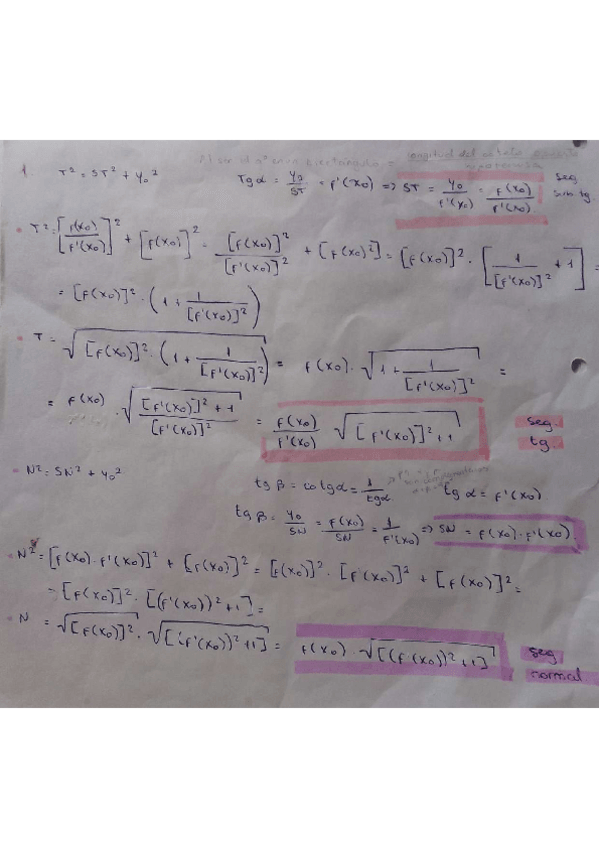 1. T² = ST² + y₀²
Tg α = y₀/ST = f'(x₀) ⇒ ST = y₀/f'(x₀) = f(x₀)/f'(x₀). seg
sub tg.
T² = [f(x₀)/f'(x₀)]² + [f(x₀)]² = [f(x₀)]²/[f'(x₀)]² + [f(x₀)²] = [f(x₀)]² · [1/[f'(x₀)]² + 1] =
= [f(x₀)]² · (1 + 1/[f'(x₀)]²)
T = √([f(x₀)]² · (1 + 1/[f'(x₀)]²)) = f(x₀) · √(1 + 1/[f'(x₀)]²) =
= f(x₀) · √(([f'(x₀)]² + 1)/[f'(x₀)]²) = f(x₀)/f'(x₀) √([f'(x₀)]² + 1) seg.
tg.
N² = SN² + y₀²
tg β = cotg α = 1/tg α tg α = f'(x₀).
tg β = y₀/SN = f(x₀)/SN = 1/f'(x₀) ⇒ SN = f(x₀) · f'(x₀).
N² = [f(x₀) · f'(x₀)]² + [f(x₀)]² = [f(x₀)]² · [f'(x₀)]² + [f(x₀)]² =
= [f(x₀)]² · [(f'(x₀))² + 1] =
N = √[f(x₀)]² · √[(f'(x₀))² + 1] = f(x₀) · √[(f'(x₀))² + 1] seg
normal